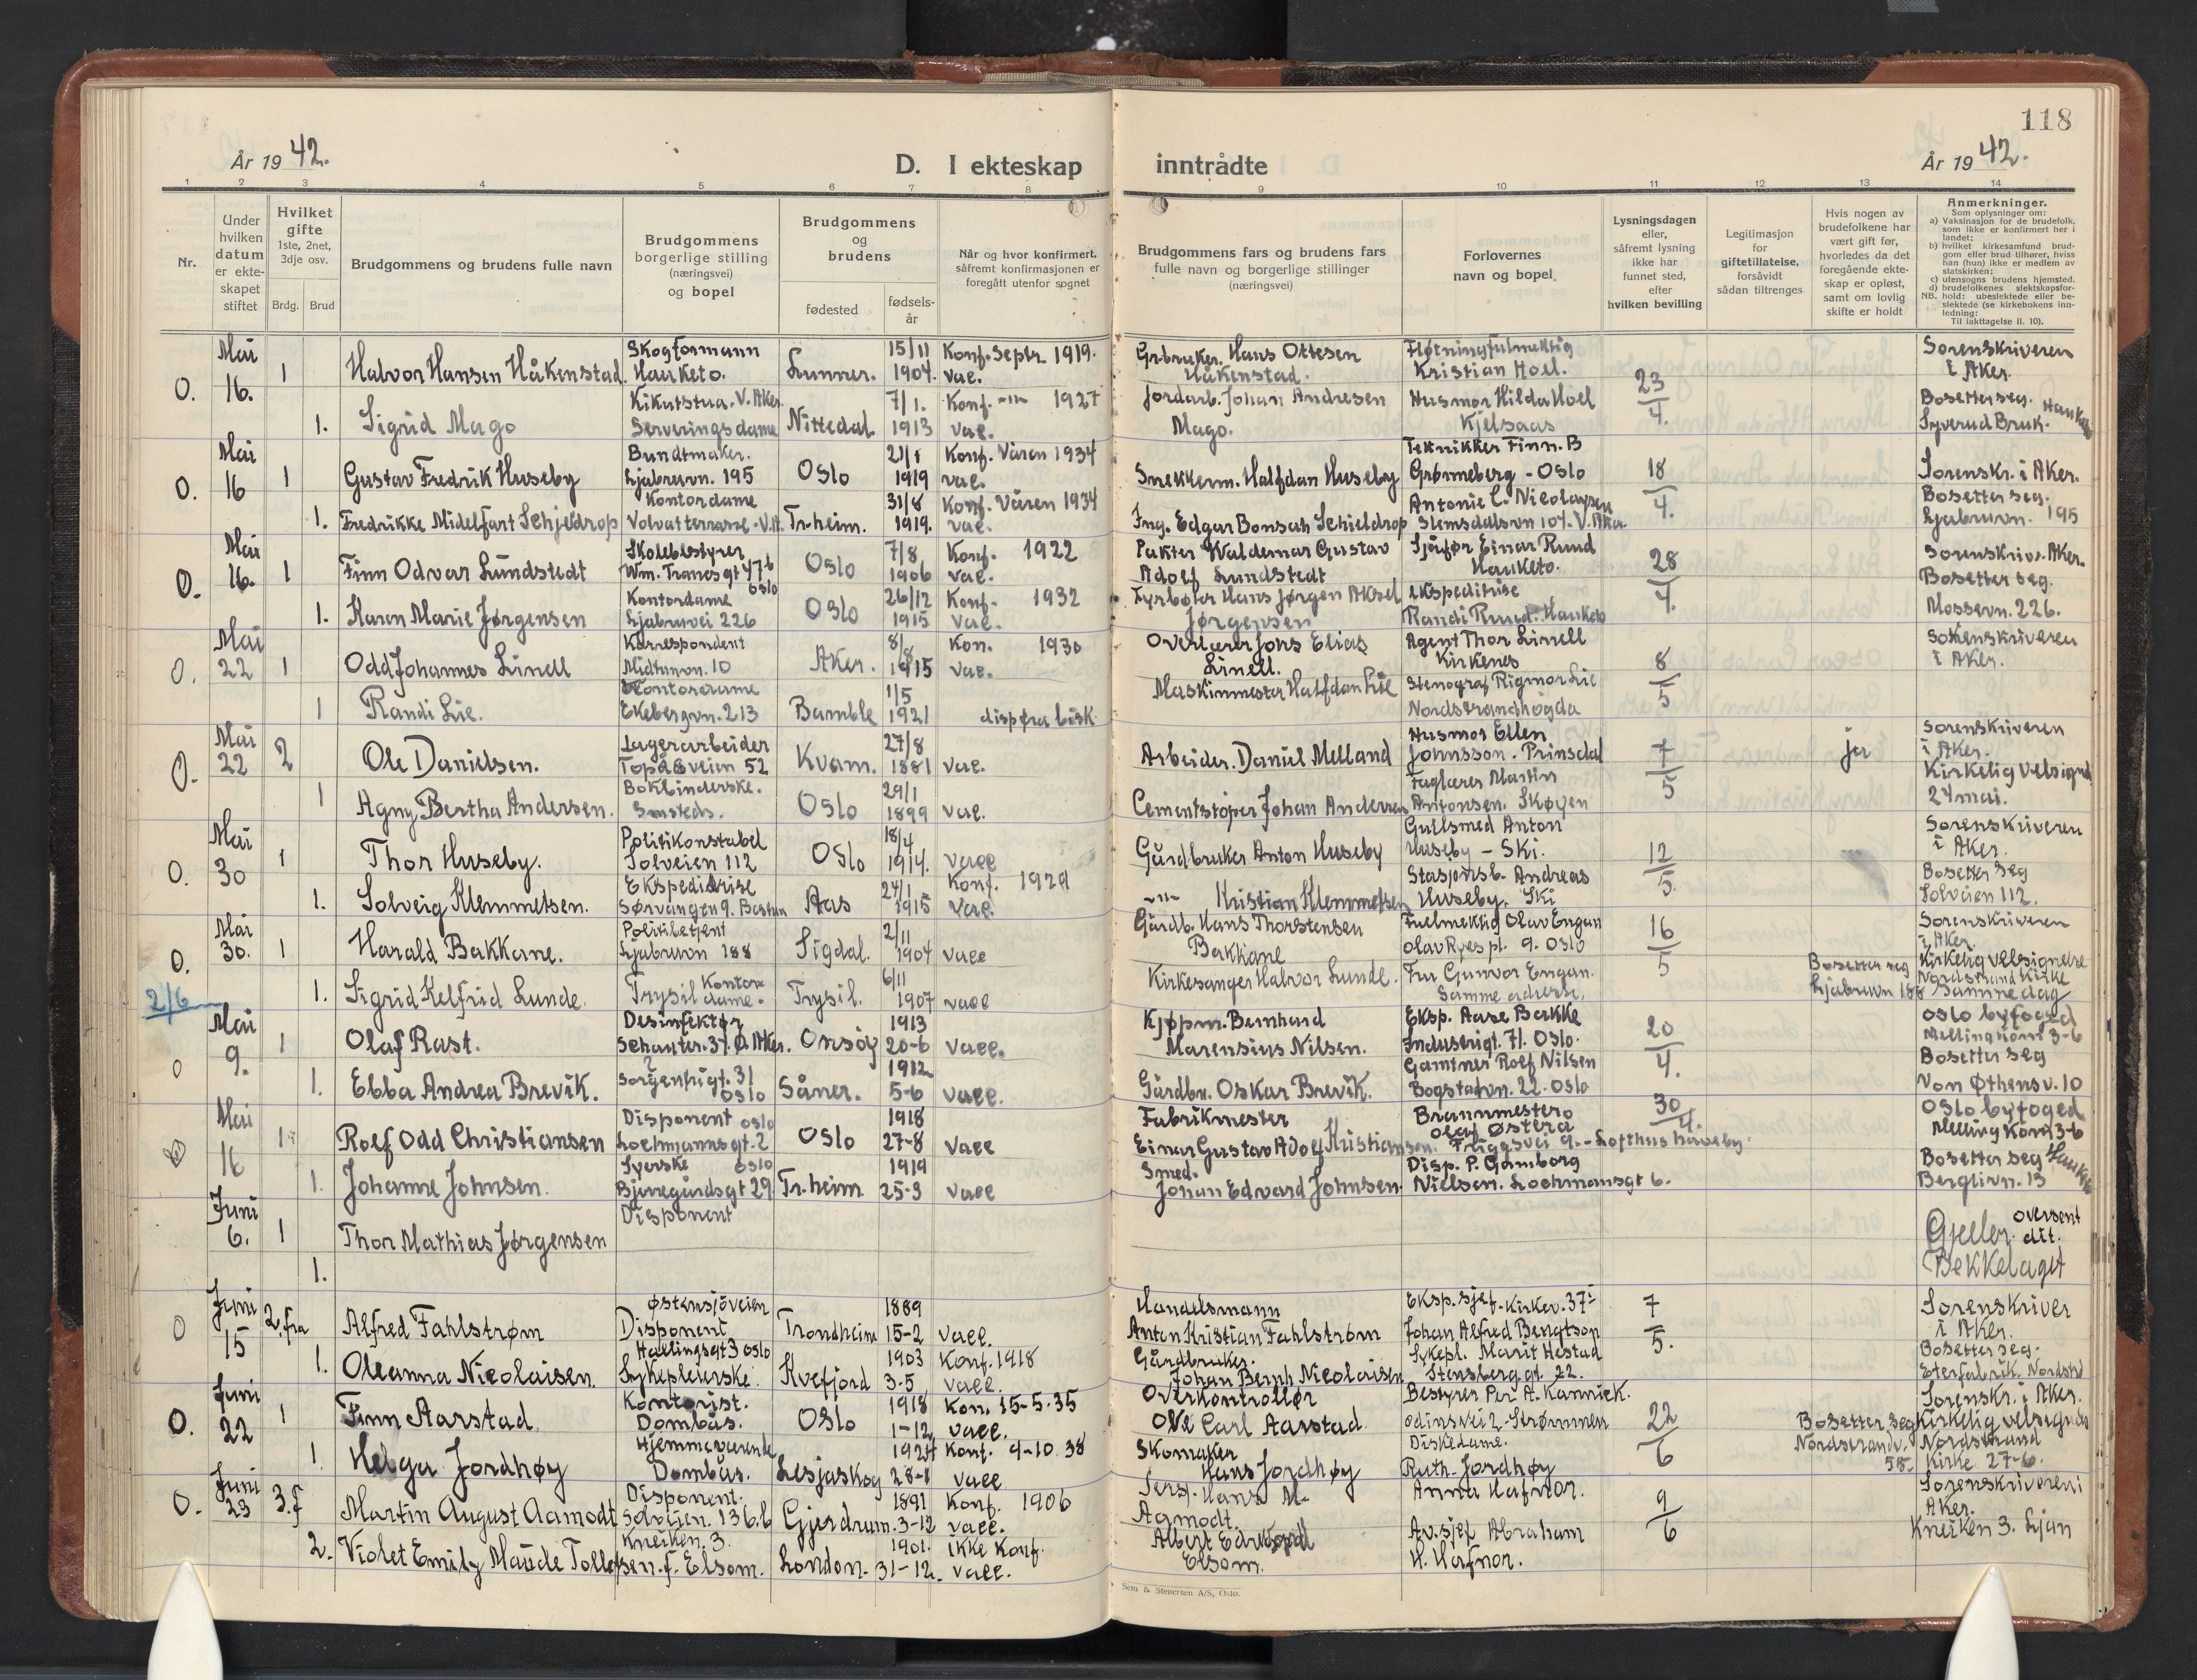 118
År 19 42.
D. I ekteskap inntrådte
År 19 42.
1 2 3 4 5 6 7 8 9 10 11 12 13 14
Nr.
Under hvilken datum er ekteskapet stiftet
Hvilket gifte 1ste, 2net, 3dje osv.
Brdg. Brud
Brudgommens og brudens fulle navn
Brudgommens borgerlige stilling (næringsvei) og bopel
Brudgommens og brudens
fødested
fødselsår
Når og hvor konfirmert, såfremt konfirmasjonen er foregått utenfor sognet
Brudgommens fars og brudens fars fulle navn og borgerlige stillinger (næringsvei)
Forlovernes navn og bopel
Lysningsdagen eller, såfremt lysning ikke har funnet sted, efter hvilken bevilling
Legitimasjon for giftetillatelse, forsåvidt sådan tiltrenges
Hvis nogen av brudefolkene har vært gift før, hvorledes da det foregående ekteskap er opløst, samt om lovlig skifte er holdt
Anmerkninger.
Som oplysninger om:
a) Vaksinasjon for de brudefolk, som ikke er konfirmert her i landet;
b) hvilket kirkesamfund brudgom eller brud tilhører, hviss han (hun) ikke er medlem av statskirken;
c) utensogns brudens hjemsted.
d) brudefolkenes slektskapsforhold: ubeslektede eller beslektede (se kirkebokens innledning:
NB.
Til iakttagelse II. 10).
O. Mai 16. 1 Halvor Hansen Håkenstad. Skogformann Hauketo. Lunner. 15/11 1904. Konf. Septr. 1919. vac. Grbruker. Hans Ottesen Håkenstad. Fløtningfulmektig Kristian Hoel. 23/4. Sorenskriveren i Aker.
1. Sigrid Mago Kikutstua. V. Aker. Serveringsdame Nittedal. 7/1. 1913 Konf. -"- 1927 vac. Jordarb. Johan Andresen Mago. Husmor Hilda Hoel Kjelsaas Bosetter seg. Hauketo Syverud Bruk.
O. Mai 16 1 Gustav Fredrik Huseby Bundtmaker. Ljabruvn. 195 Oslo 21/1 1919 Konf. Våren 1934 vac. Snekkerm. Halfdan Huseby Teknikker Finn. B Grønneberg - Oslo 18/4. Sorenskr. i Aker.
1. Fredrikke Midelfart Schjeldrop Kontordame Volvatterrasse - V.A. Tr.heim. 31/8 1919. Konf. Våren 1934 vac. Ing. Edgar Bonsach Schieldrop Antonie C. Nicolaysen Slemsdalsvn 107. V. Aker Bosetter seg. Ljabruvn. 195
O. Mai 16. 1 Finn Odvar Lundstedt Skolebestyrer Wm. Tranes gt 47b Oslo Oslo 7/8 1906 Konf. 1922 vac. Pakter Valdemar Gustav Adolf Lundstedt Sjåfør Einar Ruud Hauketo. 28/4. Sorenskriv. Aker.
1. Karen Marie Jørgensen Kontordame Ljabruvei 226 Oslo 26/12 1915 Konf. 1932 vac. Fyrbøter Hans Jørgen Aksel Jørgensen Ekspeditrise Randi Ruud. Hauketo Bosetter seg. Mossevn. 226.
O. Mai 22 1 Odd Johannes Linell Korrespondent Midtunvn. 10 Aker. 8/8 1915 Kon. 1930 vac. Overlærer Jons Elias Linell. Agent Thor Linell Kirkenes 8/5 Sorenskriveren i Aker.
1 Randi Lie. Kontordame Ekebergvn. 213 Bamble 1/5 1921 disp fra bisk. Maskinmester Halfdan Lie Stenograf Rigmor Lie Nordstrandhøgda
O. Mai 22 2 Ole Danielsen. Lagerarbeider Topåsveien 52 Kvam. 27/8 1881 vac. Arbeider. Daniel Melland Husmor Ellen Johnsson. Prinsdal 7/5 ja Sorenskriveren i Aker.
1 Agny Bertha Andersen. Bokbinderske. Smsteds. Oslo 29/1 1899 vac. Cementstøper Johan Andersen Faglærer Martin Antonsen. Skøyen Kirkelig velsignd 24 mai.
O. Mai 30 1 Thor Huseby. Politikonstabel Solveien 112 Oslo 18/4 1914. vacc Gårdbruker Anton Huseby Gullsmed Anton Huseby - Ski. 12/5. Sorenskriveren i Aker.
1. Solveig Klemmetsen. Ekspeditrise Sørvangen 9. Bestun Aas 24/1 1915 Konf. 1929 vac. -"- Kristian Klemmetsen Stasjonsb. Andreas Huseby. Ski Bosetter seg Solveien 112.
O. Mai 30. 1 Harald Bakkane. Politibetjent Ljabruvn 188 Sigdal. 2/11 1904 vacc Gårdb. Hans Thorstensen Bakkane Fulmektig Olav Engan Olav Ryes pl. 9. Oslo 16/5 Sorenskriveren i Aker.
2/6 1. Sigrid Kelfrid Lunde. Kontordame. Trysil Trysil. 6/11 1907 vacc Kirkesanger Halvor Lunde. Fru Gunvor Engan. Samme adresse. Bosetter seg Ljabruvn 188 Kirkelig velsignelse Nordstrand Kirke Samme dag
O Mai 9. 1 Olaf Rast. Desinfektør Schauter. 37. Ø. Aker. Onsøy 1913 20-6 vacc. Kjøpm. Bernhard Marensius Nilsen. Eksp. Aase Bakke Industrigt. 71. Oslo. 20/4. Oslo byfoged Melling kom 3-6
1. Ebba Andrea Brevik. ? Sorgenfrigt. 31 Oslo Såner. 1912 5-6 vacc. Gårdbr. Oskar Brevik. Gartner Roef Nilsen Bogstadvn. 22. Oslo Bosetter seg Von Øthens v. 10
Mai 16 1 Rolf Odd Christiansen Disponent Oslo Lochmannsgt. 2 Oslo 1918 27-8 vacc Fabrikmester Einar Gustav Adolf Kristiansen. Brannmester Olaf Østerø Friggsvei 9. - Lofthus haveby. 30/4. Oslo byfoged Melling kom 3-6
1. Johanne Johnsen. Syerske Oslo Bjerregårdsgt 29 Tr.heim. 1919 25-3 vacc Smed. Johan Edvard Johnsen. Disp. P. Gamborg Nielsen. Lochmansgt 6. Bosetter seg Hauketo Berglivn. 13
Juni 6. 1 Thor Mathias Jørgensen Disponent Gjelder oversent dit.
1. Bekkelaget
O Juni 15 2. fra Alfred Fahlstrøm Østensjøveien Disponent Trondheim 1889 15-2 vacc. Handelsmann Anton Kristian Fahlstrøm Eksp. sjef. Kirkev. 37 Johan Alfred Bengtson 7/5. Sorenskriver i Aker.
1. Oleanna Nicolaisen. Hallingsgt 3 Oslo Sykepleierske. Kvefjord 1903 3-5 Konf. 1918 vacc. Gårdbruker. Johan Bernh Nicolaisen Sykepl. Marit Hestad Stensberggt. 22. Bosetter seg. Eterfabrik. Nordstrd
O. Juni 22 1 Finn Aarstad. Kontorist. Dombås. Oslo 1918 1-12 Kon. 15-5-35 vacc. Overkontrollør Ole Carl Aarstad. Bestyrer Per A. Kannick. Odinsvei 2. Strømmen 22/6 Sorenskr. i Aker.
1. Helga Jordhøy Hjemmeværende Dombås. Lesjaskog 1924 28-1 Konf. 9-10. 38 vacc Skomaker Hans Jordhøy Diskedame. Ruth. Jordhøy Bosetter seg Nordstrandv. 55. Kirkelig velsignelse Nordstrand Kirke 27-6.
O. Juni 23 3. f Martin August Aamodt Disponent. Solveien. 136.b Gjerdrum. 1891 3-12 Konf. 1906 vacc. Sersj. Hans M. Aamodt. Anna Hafnor. 9/6 Sorenskriveren i Aker.
2. Violet Emily Maude Tollefsen. f. Elsom. Kneiken. 3. London. 1901. 31-12. ikke konf. vacc. Albert Edward Elsom. Av. sjef Abraham H. Hafnor. Kneiken 3. Ljan
Sem & Stenersen A/S, Oslo.